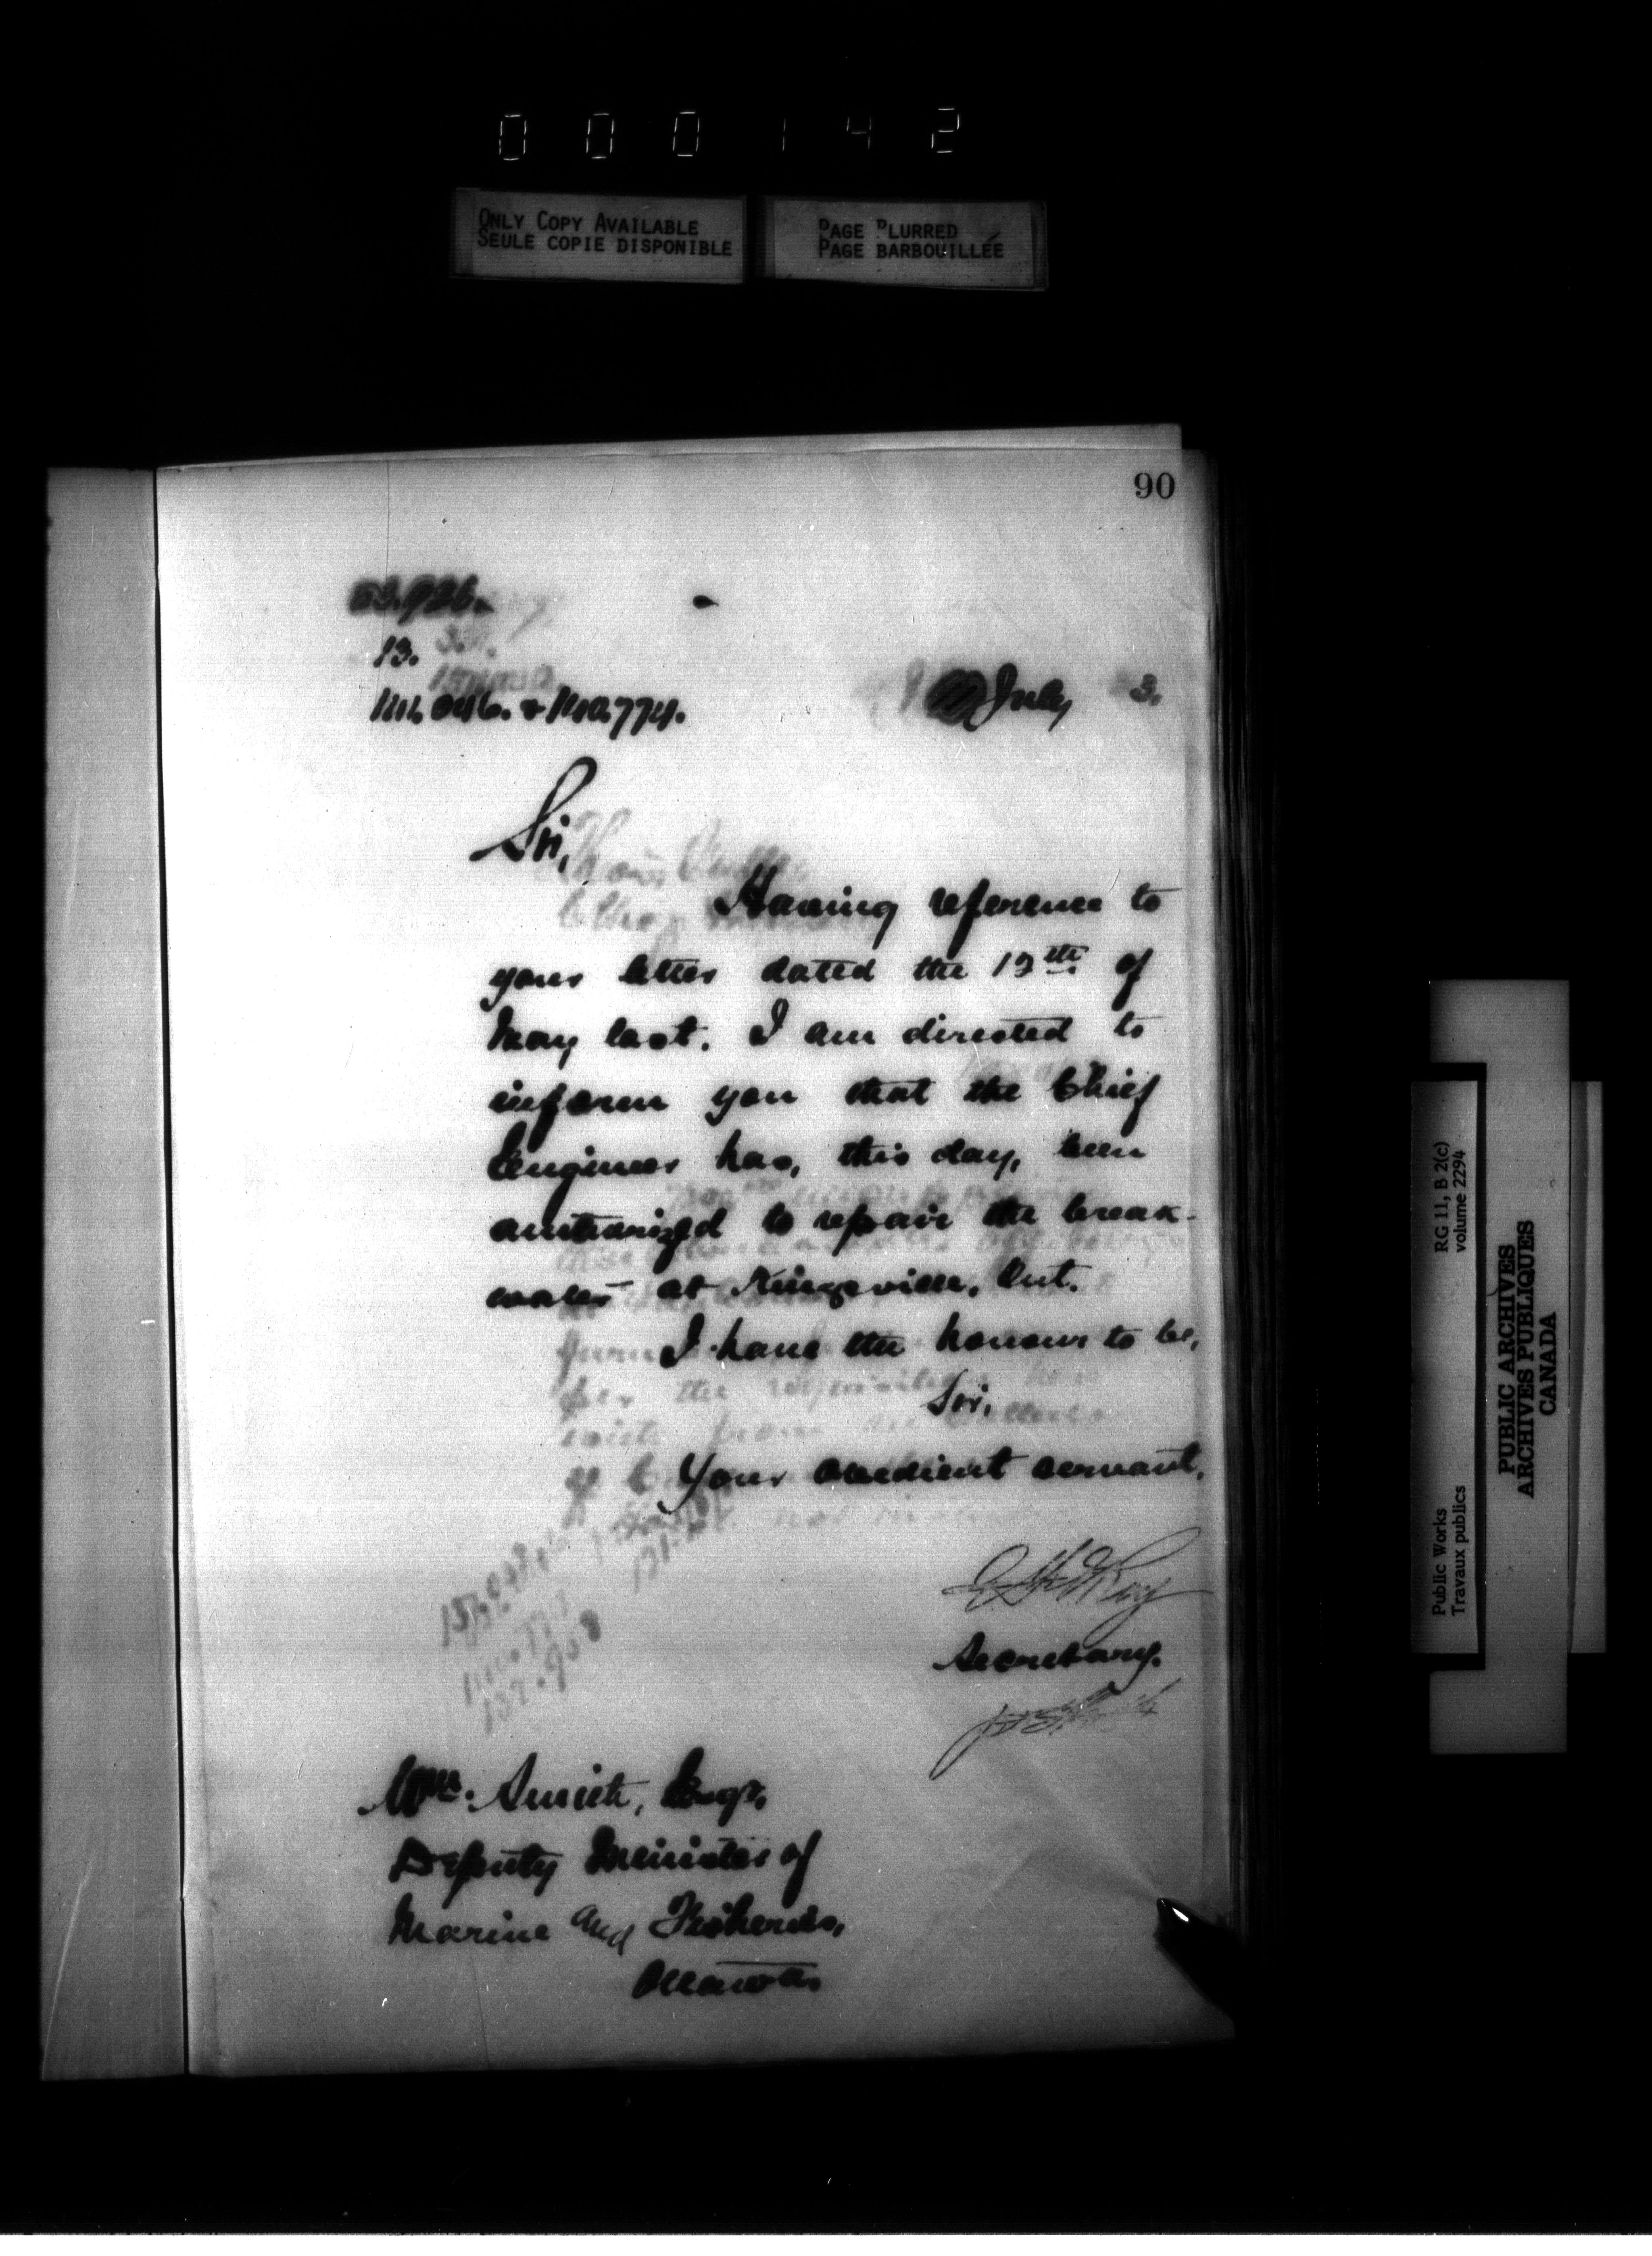 000142
ONLY COPY AVAILABLE
SEULE COPIE DISPONIBLE
PAGE BLURRED
PAGE BARBOUILLÉE
90
13.
July 3.
Sir,
Having reference to
your letter dated the 13th of
May last. I am directed to
inform you that the Chief
Engineer has, this day, been
authorized to repair the break-
water at Kingsville, Ont.
I have the honour to be,
Sir,
Your obedient servant,
Secretary.
Wm. Smith, Esqr.
Deputy Minister of
Marine and Fisheries,
Ottawa.
RG 11, B 2(c)
volume 2294
Public Works
Travaux publics
PUBLIC ARCHIVES
ARCHIVES PUBLIQUES
CANADA